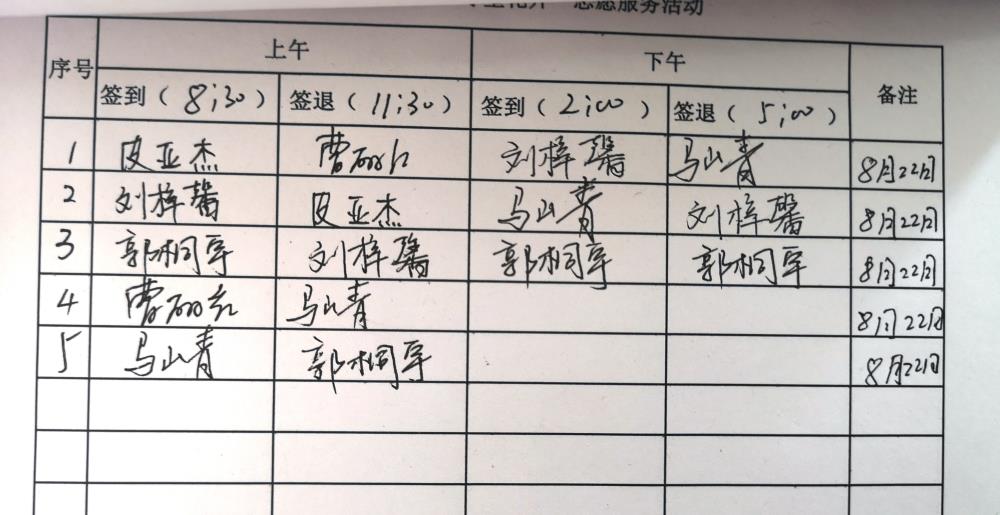 志愿服务活动
序号 上午 下午 备注
签到（8:30） 签退（11:30） 签到（2:00） 签退（5:00）
1 皮亚杰 曹 刘梓馨 马山青 8月22日
2 刘梓馨 皮亚杰 马山青 刘梓馨 8月22日
3 郭桐军 刘梓馨 郭桐军 郭桐军 8月22日
4 曹 马山青 8月22日
5 马山青 郭桐军 8月22日